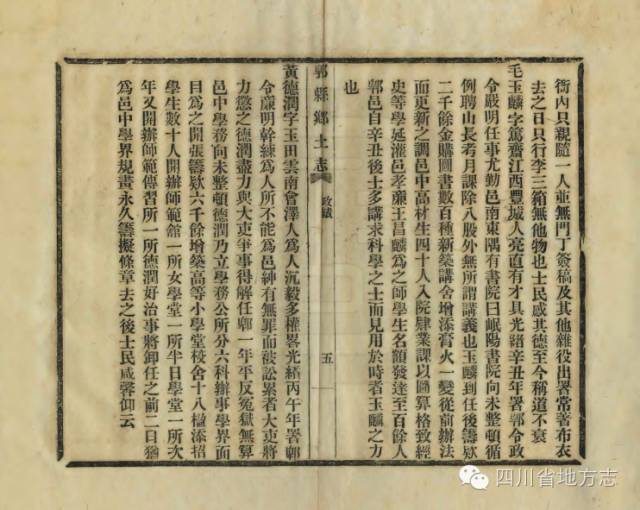 衙內只親隨一人並無門丁簽稿及其他雜役出署常著布衣
去之日只行李三箱無他物也士民咸其德至今稱道不衰
毛玉麟字篤齋江西豐城人亮直有才具光緒辛丑年署郫令政
令嚴明任事尤勤邑南東隅有書院曰岷陽書院向未整頓循
例聘山長考月課除八股外無所謂講義也玉麟到任後籌欵
二千餘金購圖書數百種新築講舍增添膏火一變從前辦法
而更新之調邑中高材生四十人入院肄業課以圖算格致經
史等學延灌邑孝廉王昌麟為之師學生名額發達至百餘人
郫邑自辛丑後士多講求科學之士而見用於時者玉麟之力
也
郫縣鄉土志
政績
五
黃德潤字玉田雲南會澤人為人沉毅多權畧光緒丙午年署郫
令廉明幹練為人所不能為邑紳有無罪而被訟累者大吏將
力懲之德潤盡力與大吏爭事得解任郫一年平反冤獄無算
邑中學務向未整頓德潤乃立學務公所分六科辦事學界面
目為之開張籌欵六千餘增築高等小學堂校舍十八楹添招
學生數十人開辦師範館一所女學堂一所半日學堂一所次
年又開辦師範傳習所一所德潤好治事將卸任之前二日猶
為邑中學界規畫永久籌擬條章去之後士民咸馨仰云
四川省地方志